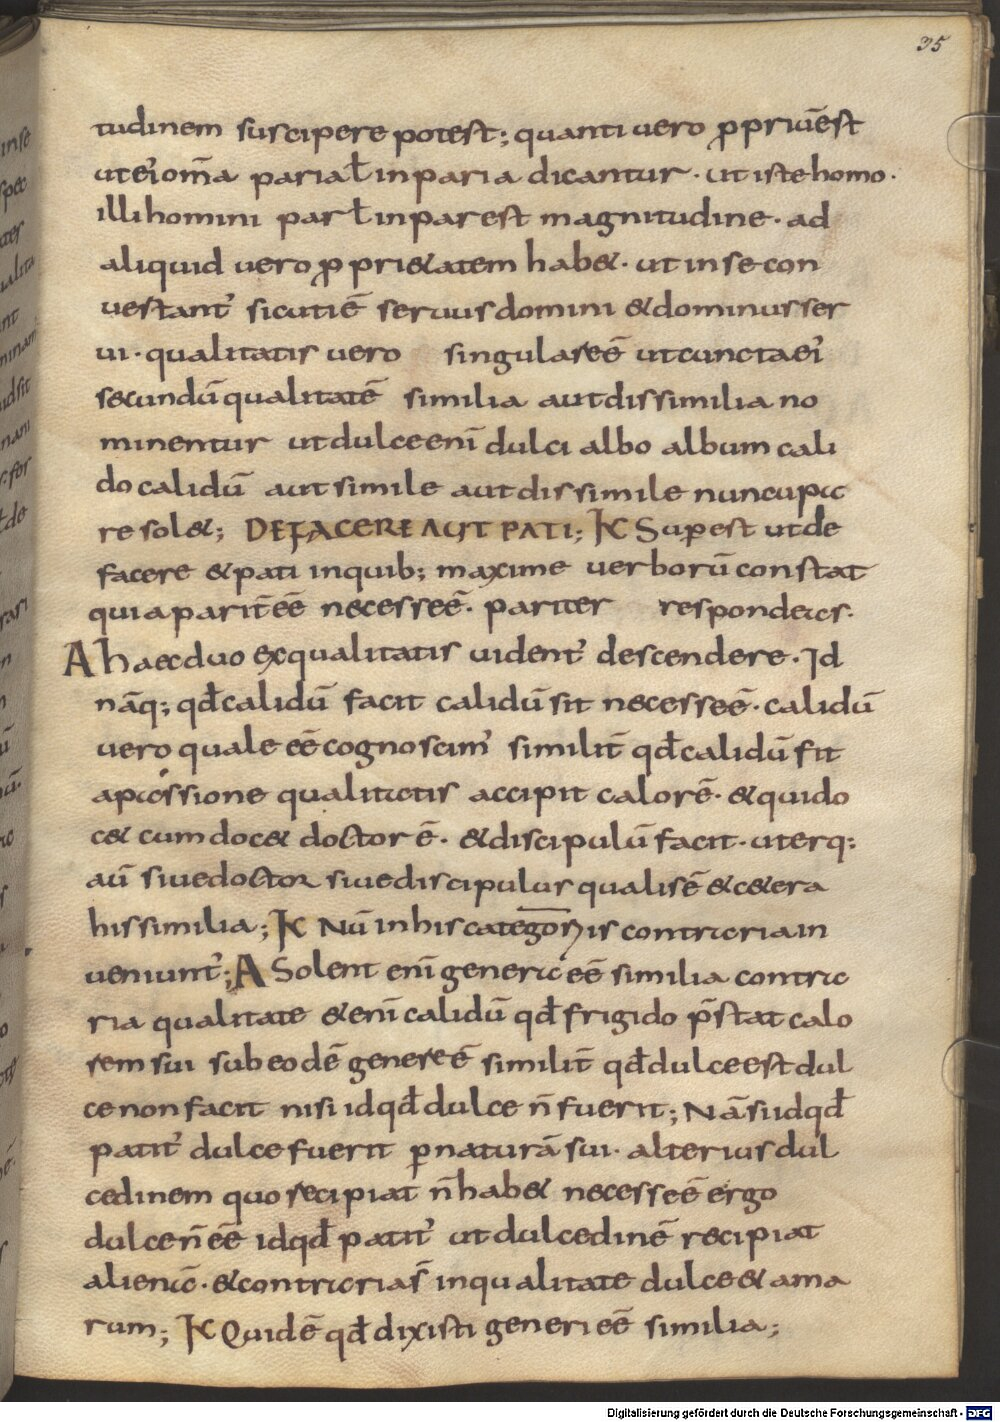 35
tudinem suscipere potest; quanti uero ꝓpriū est
ut ei om̄a paria ł inparia dicantur · ut iste homo ·
illi homini par ł inpar est magnitudine · ad
aliquid uero ꝓpri&atem hab& · ut in se con
uestant᷒ sicuti ē seruus domini & dominus ser
ui · qualitatis uero singulare ēē ut cuncta ei᷒
secundū qualitatē similia aut dissimilia no
minentur ut dulce eni᷒ dulci albo album cali
do calidū aut simile aut dissimile nuncupa
re sol&; DE FACERE AUT PATI; K Suꝑest ut de
facere & pati inquib; maxime uerborū constat
quia parit̄ ēē necesse ē · pariter respondeas ·
A haec duo ex qualitatis uident᷒ descendere · Id
nāq; qđ calidū facit calidū sit necesse ē · calidū
uero quale ēē cognoscim᷒ similit̄ qđ calidū fit
a passione qualitatis accipit calorē · & qui do
c& cum doc& doctor ē · & discipulū facit · uterq:
aū siue doctor siue discipulus qualis ē & c&era
his similia; K Nū in his categoriis contraria in
ueniunt᷒; A Solent eni᷒ genera ēē similia contra
ria qualitate & eni᷒ calidū qđ frigido p̄stat calo
rem sui sub eodē genere ē similit̄ qđ dulce est dul
ce non facit nisi id qđ dulce n̄ fuerit; Nā si id qđ
patit᷒ dulce fuerit ꝑ naturā sui · alterius dul
cedinem quo recipiat n̄ hab& necesse ē ergo
dulce n̄ ēē id qđ patit᷒ ut dulcedinē recipiat
alienā · & contraria s̄ in qualitate dulce & ama
rum; K Quid ē qđ dixisti generi ēē similia;
Digitalisierung gefördert durch die Deutsche Forschungsgemeinschaft - DFG